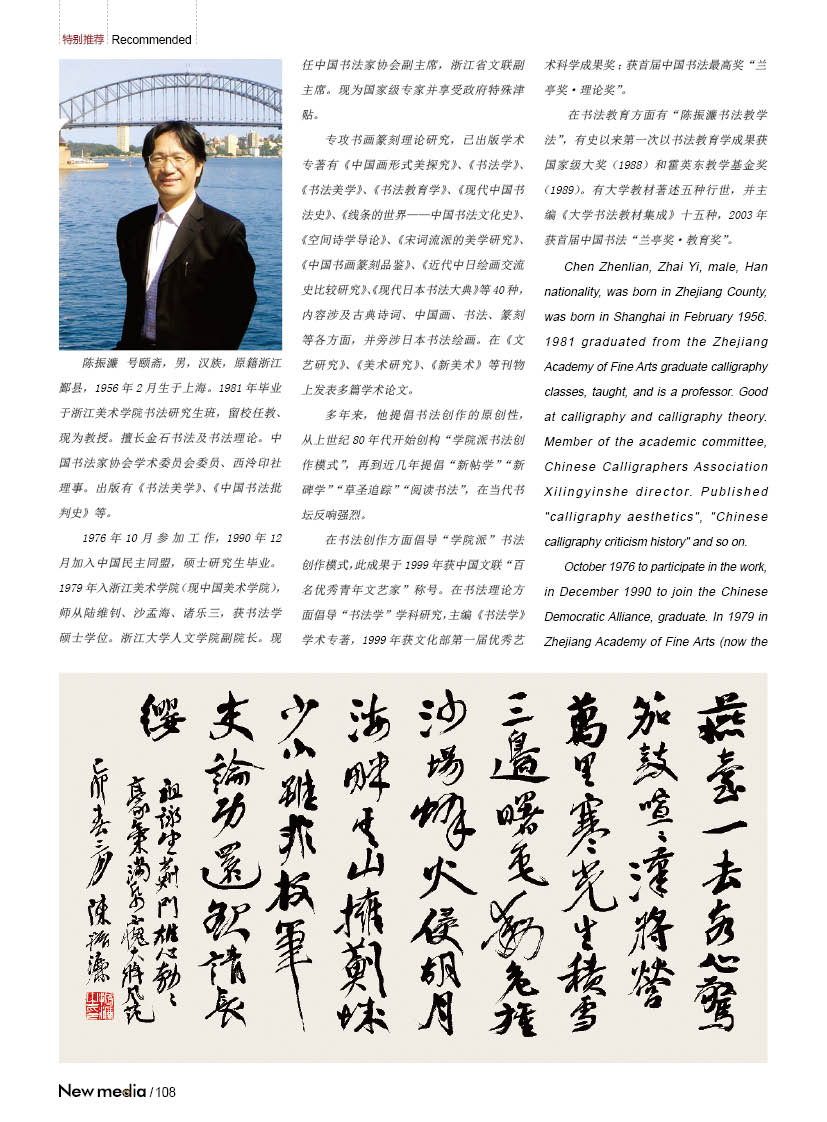 特别推荐 Recommended
陈振濂 号颐斋，男，汉族，原籍浙江
鄞县，1956 年 2 月生于上海。1981 年毕业
于浙江美术学院书法研究生班，留校任教、
现为教授。擅长金石书法及书法理论。中
国书法家协会学术委员会委员、西泠印社
理事。出版有《书法美学》、《中国书法批
判史》等。
1976 年 10 月参加工作，1990 年 12
月加入中国民主同盟，硕士研究生毕业。
1979 年入浙江美术学院（现中国美术学院），
师从陆维钊、沙孟海、诸乐三，获书法学
硕士学位。浙江大学人文学院副院长。现
任中国书法家协会副主席，浙江省文联副
主席。现为国家级专家并享受政府特殊津
贴。
专攻书画篆刻理论研究，已出版学术
专著有《中国画形式美探究》、《书法学》、
《书法美学》、《书法教育学》、《现代中国书
法史》、《线条的世界——中国书法文化史》、
《空间诗学导论》、《宋词流派的美学研究》、
《中国书画篆刻品鉴》、《近代中日绘画交流
史比较研究》、《现代日本书法大典》等 40 种，
内容涉及古典诗词、中国画、书法、篆刻
等各方面，并旁涉日本书法绘画。在《文
艺研究》、《美术研究》、《新美术》等刊物
上发表多篇学术论文。
多年来，他提倡书法创作的原创性，
从上世纪 80 年代开始创构“学院派书法创
作模式”，再到近几年提倡“新帖学”“新
碑学”“草圣追踪”“阅读书法”，在当代书
坛反响强烈。
在书法创作方面倡导“学院派”书法
创作模式，此成果于 1999 年获中国文联“百
名优秀青年文艺家”称号。在书法理论方
面倡导“书法学”学科研究，主编《书法学》
学术专著，1999 年获文化部第一届优秀艺
术科学成果奖；获首届中国书法最高奖“兰
亭奖·理论奖”。
在书法教育方面有“陈振濂书法教学
法”，有史以来第一次以书法教育学成果获
国家级大奖（1988）和霍英东教学基金奖
（1989）。有大学教材著述五种行世，并主
编《大学书法教材集成》十五种，2003 年
获首届中国书法“兰亭奖·教育奖”。
Chen Zhenlian, Zhai Yi, male, Han
nationality, was born in Zhejiang County,
was born in Shanghai in February 1956.
1981 graduated from the Zhejiang
Academy of Fine Arts graduate calligraphy
classes, taught, and is a professor. Good
at calligraphy and calligraphy theory.
Member of the academic committee,
Chinese Calligraphers Association
Xilingyinshe director. Published
"calligraphy aesthetics", "Chinese
calligraphy criticism history" and so on.
October 1976 to participate in the work,
in December 1990 to join the Chinese
Democratic Alliance, graduate. In 1979 in
Zhejiang Academy of Fine Arts (now the
燕臺一去客心驚
笳鼓喧々漢將營
萬里寒光生積雪
三邊曙色動危旌
沙場烽火侵胡月
海畔雲山擁薊城
少小雖非投筆
吏論功還欲請長
纓
祖詠望薊門雄心勃々
豪氣滿紙不愧大將風範
己卯春三月 陳振濂
New media / 108